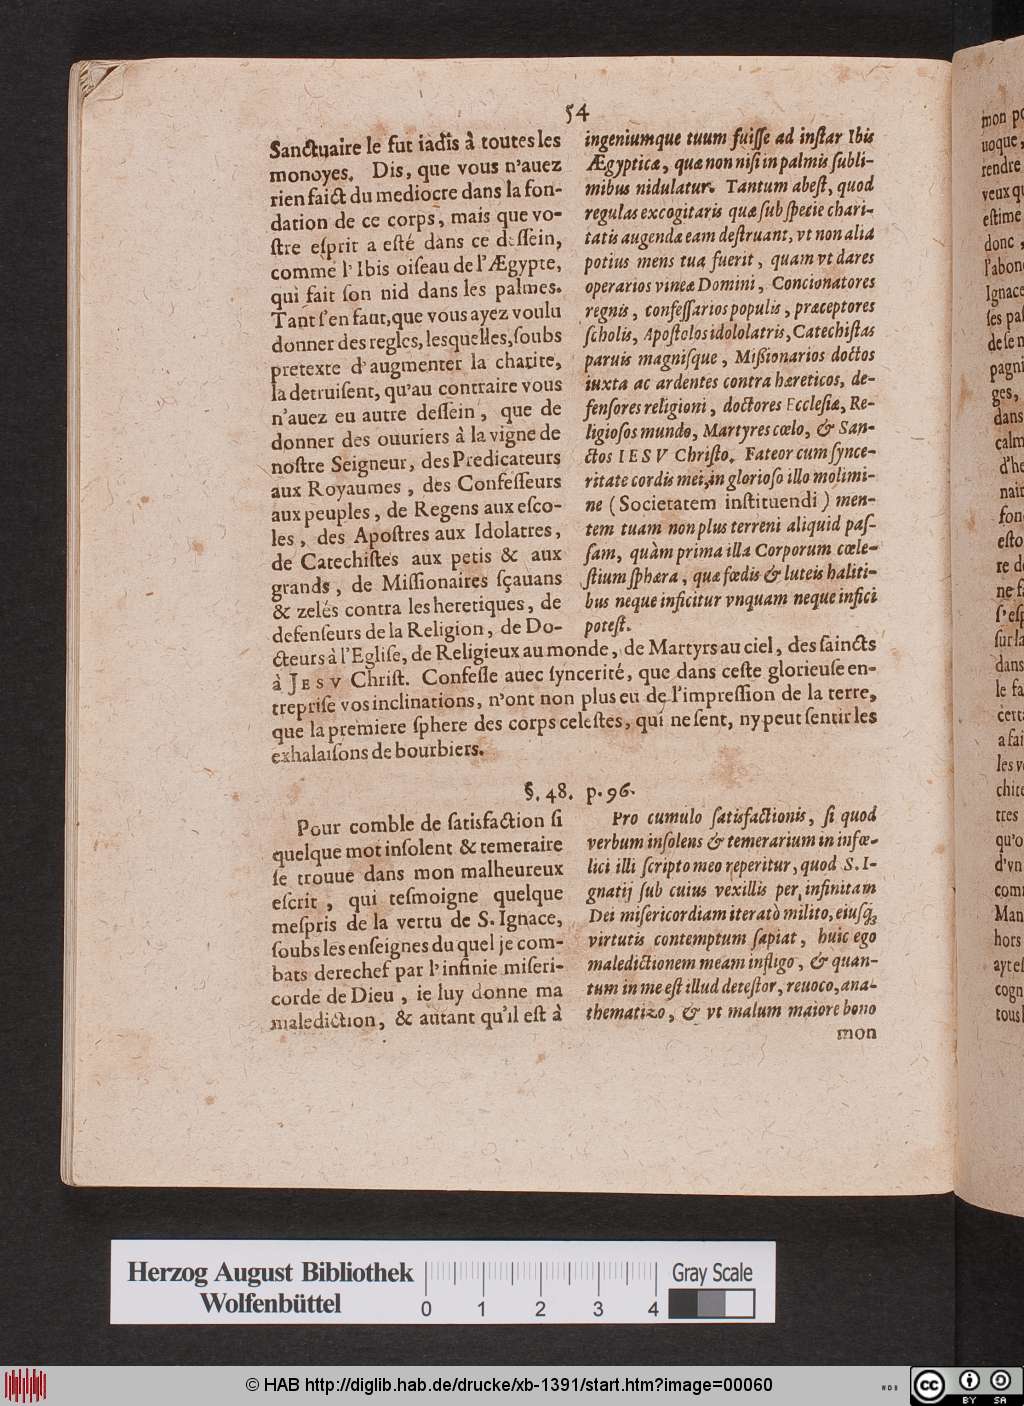 54
Sanctuaire le fut iadis à toutes les
monoyes. Dis, que vous n'auez
rien faict du mediocre dans la fon-
dation de ce corps, mais que vo-
ſtre eſprit a eſté dans ce deſſein,
comme l'Ibis oiſeau de l'Ægypte,
qui fait ſon nid dans les palmes.
Tant ſ'en faut, que vous ayez voulu
donner des regles, leſquelles, ſoubs
pretexte d'augmenter la charite,
la detruiſent, qu'au contraire vous
n'auez eu autre deſſein, que de
donner des ouuriers à la vigne de
noſtre Seigneur, des Predicateurs
aux Royaumes, des Confeſſeurs
aux peuples, de Regens aux eſco-
les, des Apoſtres aux Idolatres,
de Catechiſtes aux petis & aux
grands, de Miſſionaires ſçauans
& zelés contra les heretiques, de
defenſeurs de la Religion, de Do-
cteurs à l'Egliſe, de Religieux au monde, de Martyrs au ciel, des ſaincts
à JESV Chriſt. Confeſſe auec ſyncerité, que dans ceſte glorieuſe en-
trepriſe vos inclinations, n'ont non plus eu de l'impreſſion de la terre,
que la premiere ſphere des corps celeſtes, qui ne ſent, ny peut ſentir les
exhalaiſons de bourbiers.
ingeniumque tuum fuiſſe ad inſtar Ibis
Ægypticæ, quæ non niſi in palmis ſubli-
mibus nidulatur. Tantum abeſt, quod
regulas excogitaris quæ ſub ſpecie chari-
tatis augendæ eam deſtruant, vt non alia
potius mens tua fuerit, quam vt dares
operarios vineæ Domini, Concionatores
regnis, confeſſarios populis, præceptores
ſcholis, Apoſtolos idololatris, Catechiſtas
paruis magniſque, Miſſionarios doctos
iuxta ac ardentes contra hæreticos, de-
fenſores religioni, doctores Eccleſiæ, Re-
ligioſos mundo, Martyres cœlo, & San-
ctos IESV Chriſto. Fateor cum ſynce-
ritate cordis mei, in glorioſo illo molimi-
ne (Societatem inſtituendi) men-
tem tuam non plus terreni aliquid paſ-
ſam, quàm prima illa Corporum cœle-
ſtium ſphæra, quæ fœdis & luteis haliti-
bus neque inficitur vnquam neque infici
poteſt.
§. 48. p. 96.
Pour comble de ſatisfaction ſi
quelque mot inſolent & temeraire
ſe trouue dans mon malheureux
eſcrit, qui teſmoigne quelque
meſpris de la vertu de S. Ignace,
ſoubs les enſeignes du quel je com-
bats derechef par l'infinie miſeri-
corde de Dieu, ie luy donne ma
malediction, & autant qu'il eſt à
Pro cumulo ſatisfactionis, ſi quod
verbum inſolens & temerarium in infœ-
lici illi ſcripto meo reperitur, quod S. I-
gnatij ſub cuius vexillis per infinitam
Dei miſericordiam iteratò milito, eiuſq;
virtutis contemptum ſapiat, huic ego
maledictionem meam infligo, & quan-
tum in me eſt illud deteſtor, reuoco, ana-
thematizo, & vt malum maiore bono
mon
Herzog August Bibliothek
Wolfenbüttel
0 1 2 3 4
Gray Scale
© HAB http://diglib.hab.de/drucke/xb-1391/start.htm?image=00060
cc BY SA